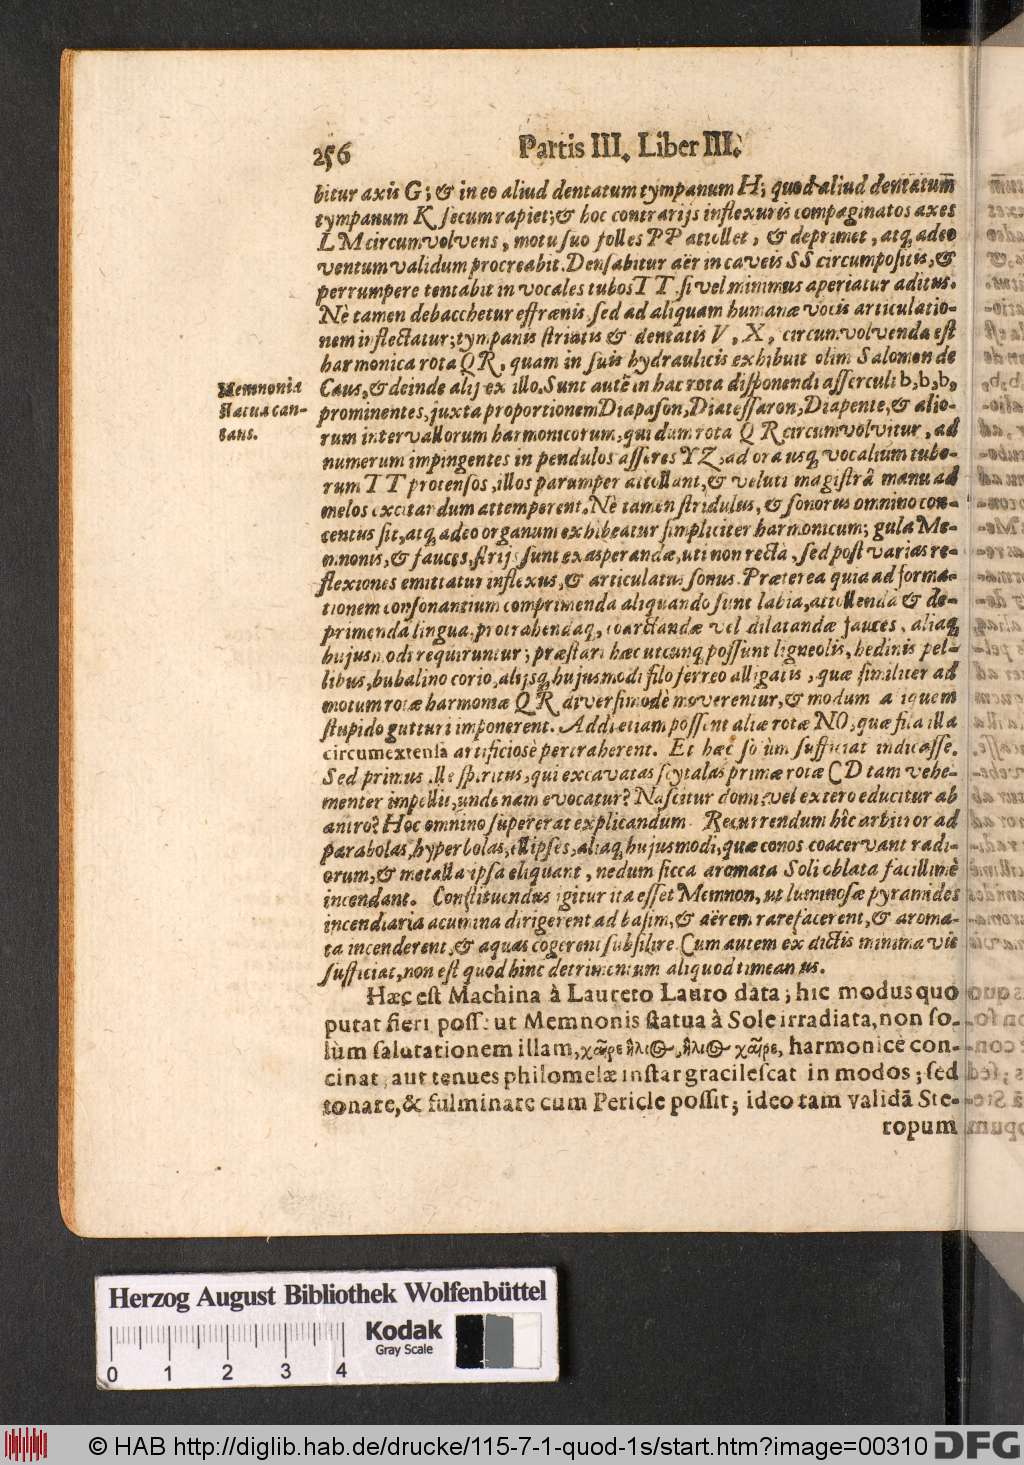 256 Partis III. Liber III.
bitur axis G; & in eo aliud dentatum tympanum H; quod aliud dentatum
tympanum K secum rapiet; & hoc contrarijs inflexuris compaginatos axes
L M circumvolvens, motu suo folles P P attollet, & deprimet, atq; adeo
ventum validum procreabit. Densabitur aër in caveis S S circumpositis, &
perrumpere tentabit in vocales tubos T T si vel minimus aperiatur aditus.
Nè tamen debacchetur effrænis sed ad aliquam humanæ vocis articulatio-
nem inflectatur; tympanis striatis & dentatis V, X, circumvolvenda est
harmonica rota Q R, quam in suis hydraulicis exhibuit olim Salomon de
Memnonis
statua can-
tans.
Caus, & deinde alij ex illo. Sunt autẽ in hac rota disponendi asserculi b, b, b,
prominentes, juxta proportionem Diapason, Diatessaron, Diapente, & alio-
rum intervallorum harmonicorum, qui dum rota Q R circumvolvitur, ad
numerum impingentes in pendulos asseres Y Z, ad ora usq; vocalium tubo-
rum T T protensos, illos parumper attollant, & veluti magistrâ manu ad
melos excitandum attemperent. Nè tamen stridulus, & sonorus omnino con-
centus sit, atq; adeo organum exhibeatur simpliciter harmonicum; gula Me-
mnonis, & fauces, strijs sunt exasperandæ, uti non recta, sed post varias re-
flexiones emittatur inflexus, & articulatus sonus. Præterea quia ad forma-
tionem consonantium comprimenda aliquando sunt labia, attollenda & de-
primenda lingua, protrahendaq;, coarctandæ vel dilatandæ fauces, aliaq;
hujusmodi requiruntur; præstari hæc utcunq; possunt ligneolis, hedinis pel-
libus, bubalino corio, alijsq; hujusmodi filo ferreo alligatis, quæ similiter ad
motum rotæ harmonæ Q R diversimodè moverentur, & modum aliquem
stupido gutturi imponerent. Addi etiam possent aliæ rotæ N O, quæ fila illa
circumextensa artificiosè pertraherent. Et hæc solùm sufficiat indicasse.
Sed primus ille spiritus, qui excavatas scytalas primæ rotæ C D tam vehe-
menter impellit, unde nam evocatur? Nascitur domi; vel extero educitur ab
antro? Hoc omnino supererat explicandum. Recurrendum hîc arbitror ad
parabolas, hyperbolas, ellipses, aliaq; hujusmodi, quæ conos coacervant radi-
orum, & metalla ipsa eliquant, nedum sicca aromata Soli oblata facillimè
incendant. Constituendus igitur ita esset Memnon, ut luminosæ pyramides
incendiaria acumina dirigerent ad basim, & aërem rarefacerent, & aroma-
ta incenderent, & aquas cogerent subsilire. Cum autem ex dictis minima vis
sufficiat, non est quod hinc detrimentum aliquod timeamus.
Hæc est Machina à Laureto Lauro data; hic modus quo
putat fieri posse ut Memnonis statua à Sole irradiata, non so-
lùm salutationem illam, χαῖρε ἥλιος, ἥλιος χαῖρε, harmonicè con-
cinat, aut tenues philomelæ instar gracilescat in modos; sed
tonare, & fulminare cum Pericle possit; ideo tam validã Ste-
ropum
Herzog August Bibliothek Wolfenbüttel
Kodak
Gray Scale
0 1 2 3 4
© HAB http://diglib.hab.de/drucke/115-7-1-quod-1s/start.htm?image=00310 DFG